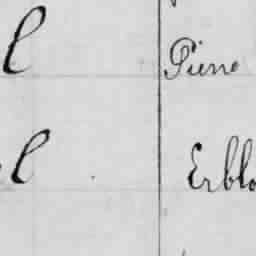 l Pierre
l Erblo